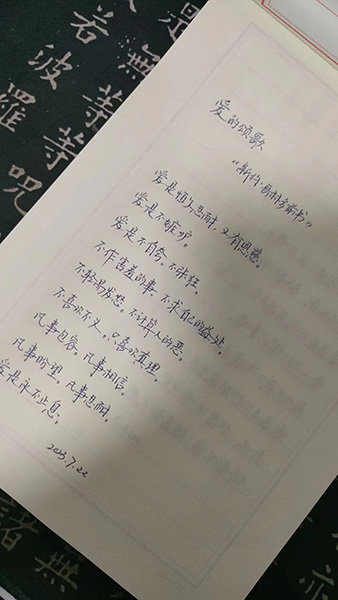 是無等等
若波羅
呪
爱的颂歌
《新约·哥林多前书》
爱是恒久忍耐,又有恩慈。
爱是不嫉妒。
爱是不自夸。不张狂。
不作害羞的事。不求自己的益处。
不轻易发怒。不计算人的恶。
不喜欢不义。只喜欢真理。
凡事包容。凡事相信。
凡事盼望。凡事忍耐。
爱是永不止息。
2023.7.22
諸
無
亦